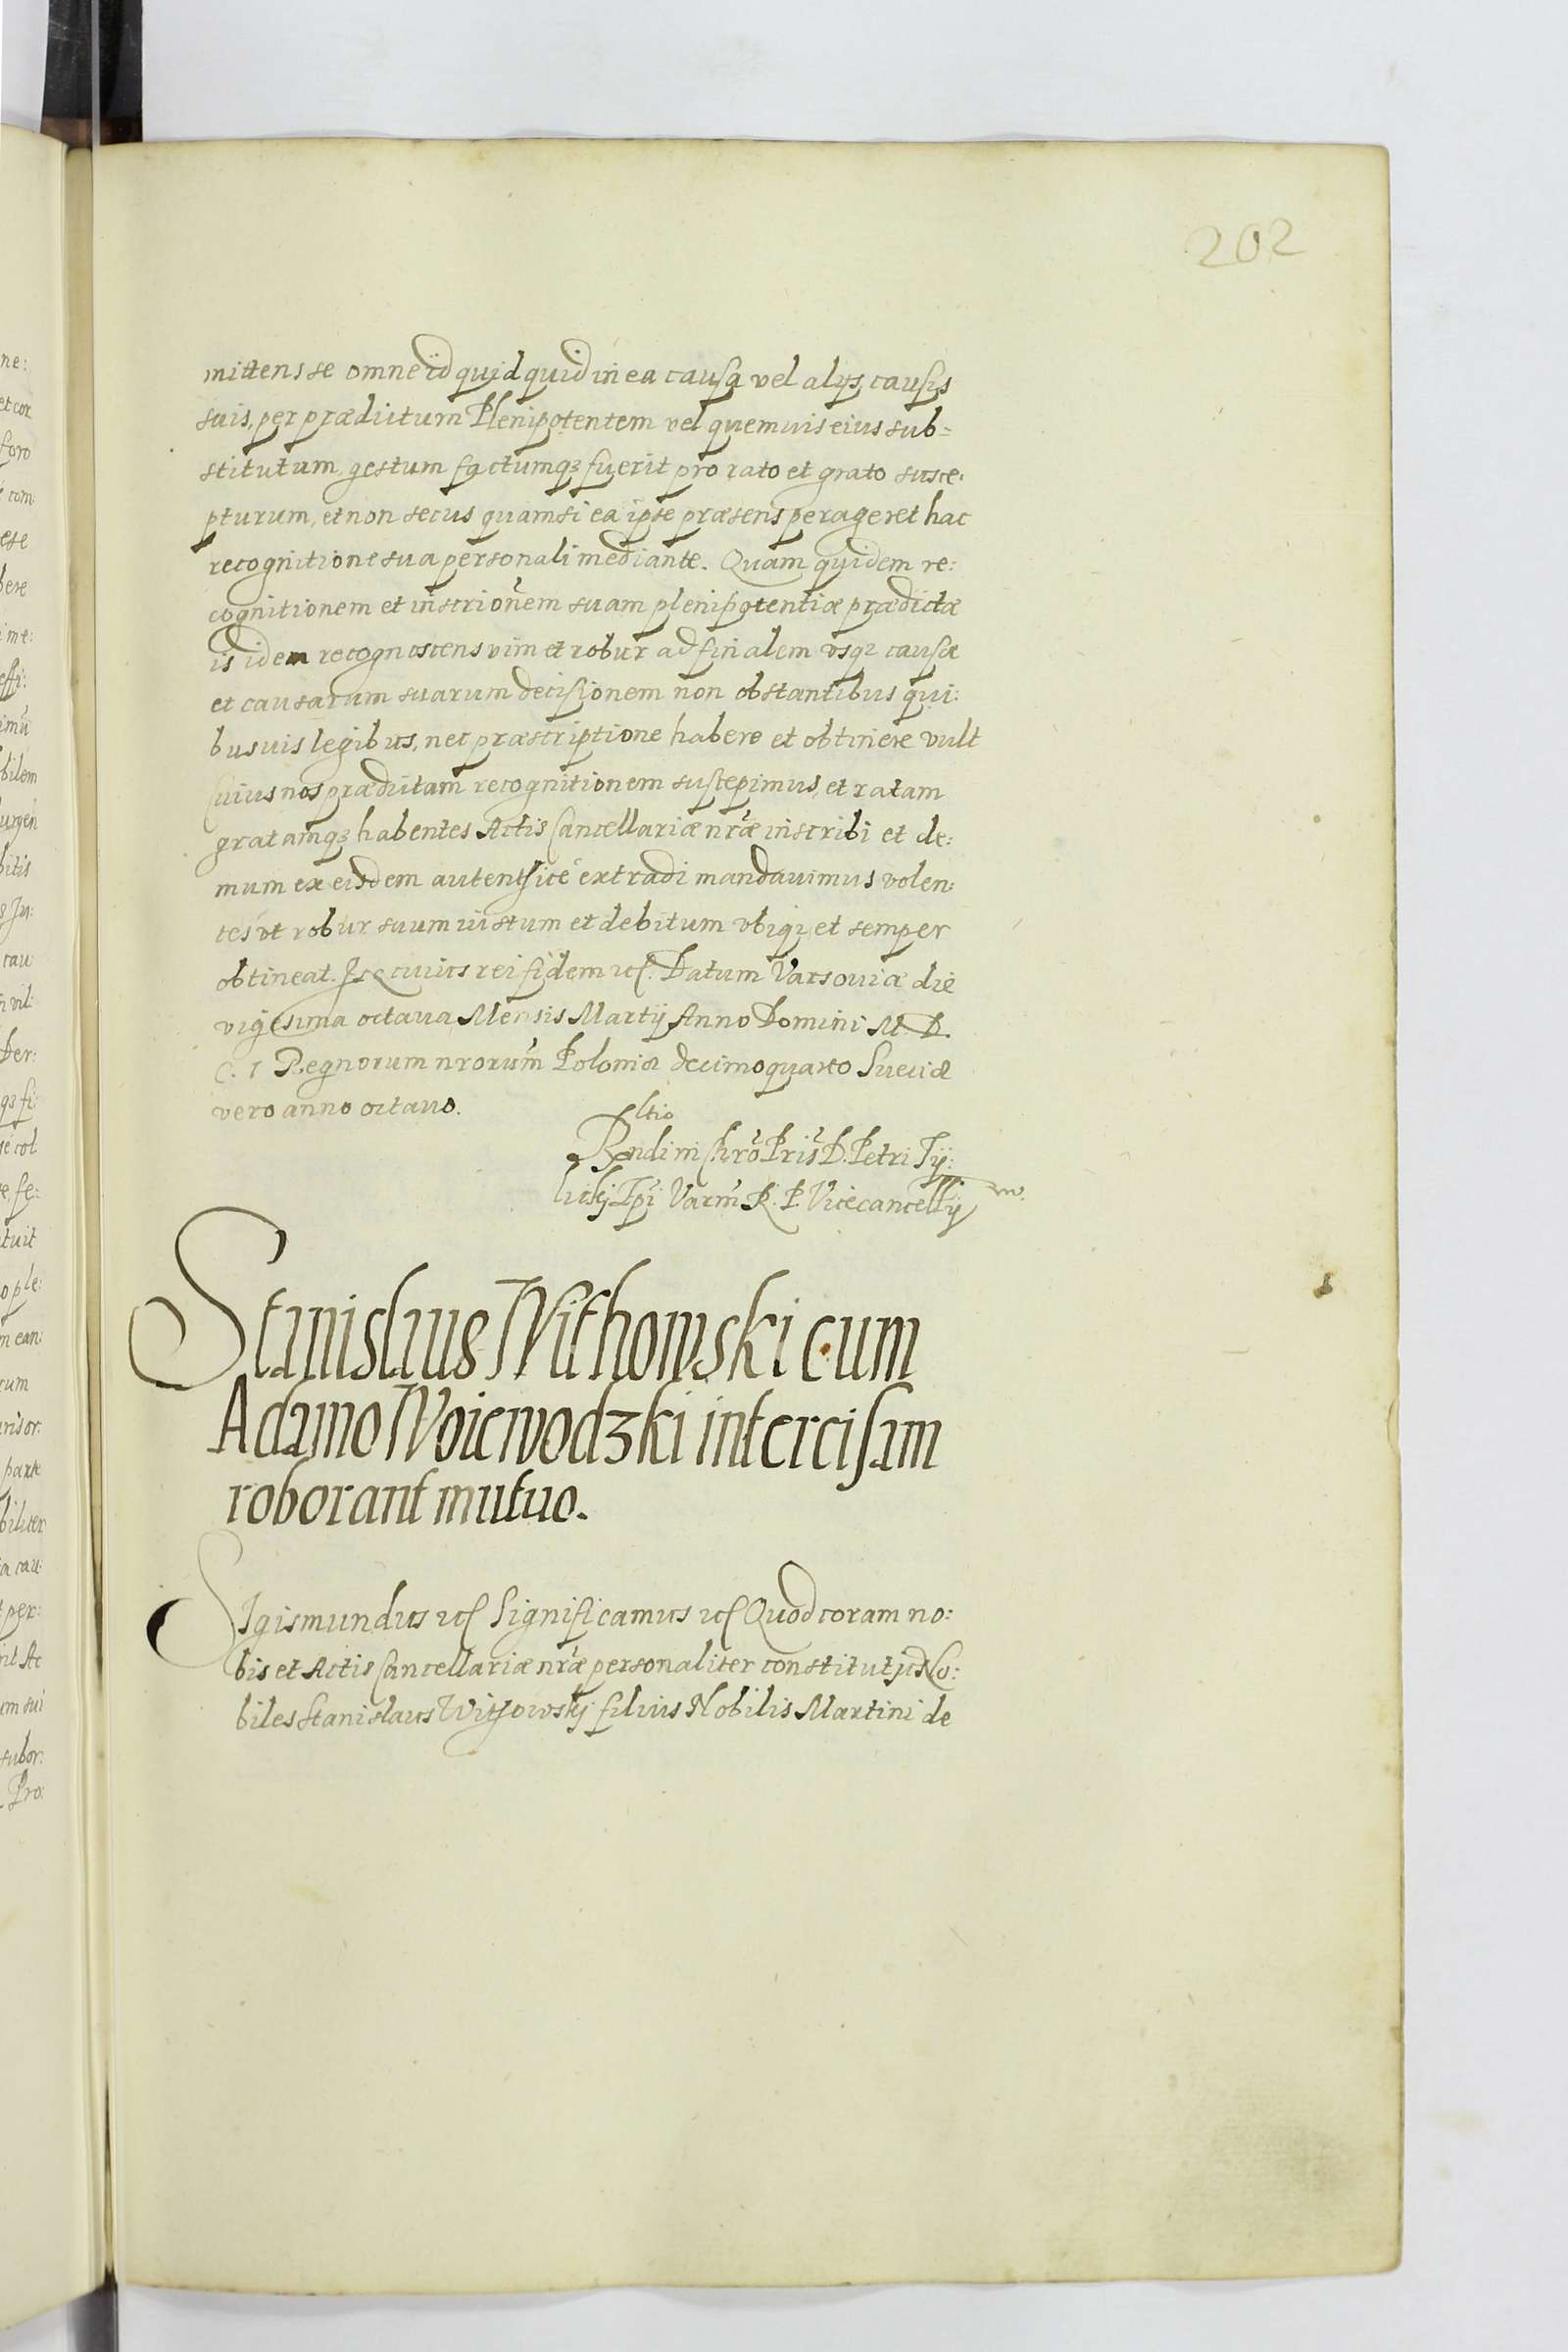 202
mittens se omne id quidquid in ea causa vel alijs causis
suis, per prædictum Plenipotentem vel quemuis eius sub=
stitutum, gestum factumqꝫ fuerit pro rato et grato susce:
pturum, et non secus quam si ea ipse præsens perageret hac
recognitione sua personali mediante. Quam quidem re:
cognitionem et inscriōnem suam plenipotentiæ prædictæ
is idem recognoscens vim et robur ad finalem vsqꝫ causæ
et causarum suarum decisionem non obstantibus qui:
busuis legibus, nec præscriptione habere et obtinere vult
Cuius nos prædictam recognitionem suscepimus, et ratam
gratamqꝫ habentes Actis Cancellariæ nrǣ inscribi et de:
mum ex eisdem autenthice extradi mandauimus volen:
tes vt robur suum iustum et debitum vbiqꝫ et semper
obtineat. In cuius rei fidem etc. Datum Varsouiæ die
vigesima octaua Mensis Martij Anno Domini M. D.
C. I Regnorum nrorum̄ Poloniæ decimoquarto Sueciæ
vero anno octauo.
Rltio
Rndi in Chrō Pris̄ D. Petri Tij:
licki Epi Varm̄ R. P. Vicecancellij
Stanislaus Withowski cum
Adamo Woiewodzki intercisam
roborant mutuo.
Sigismundus etc Significamus etc Quod coram no:
bis et Actis Cancellariæ nrǣ personaliter constituti No:
biles Stanislaus Withowskj filius Nobilis Martini de